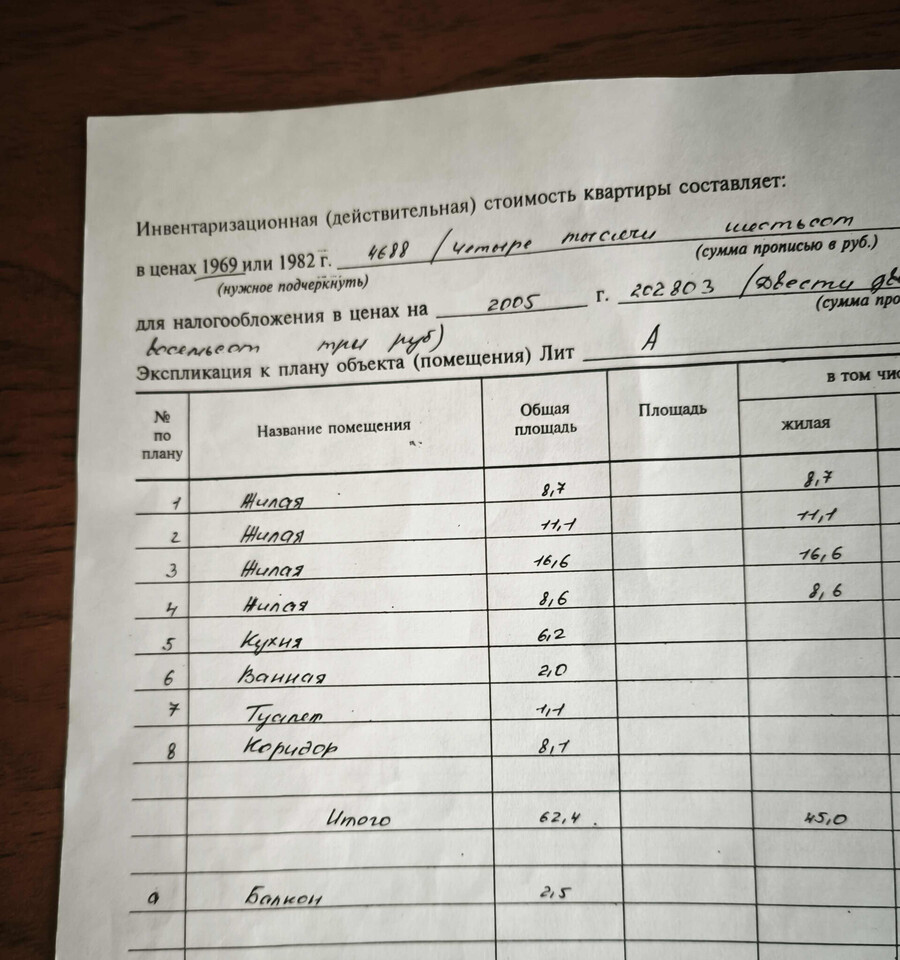 Инвентаризационная (действительная) стоимость квартиры составляет:
в ценах 1969 или 1982 г. 4688 /четыре тысячи шестьсот
(нужное подчеркнуть) (сумма прописью в руб.)
для налогообложения в ценах на 2005 г. 202803 /двести
(сумма
восемьсот три руб)
Экспликация к плану объекта (помещения) Лит А
№ по плану Название помещения Общая площадь Площадь в том
жилая
1 Жилая 8,7 8,7
2 Жилая 11,1 11,1
3 Жилая 16,6 16,6
4 Жилая 8,6 8,6
5 Кухня 6,2
6 Ванная 2,0
7 Туалет 1,1
8 Коридор 8,1
Итого 62,4 45,0
а Балкон 2,5